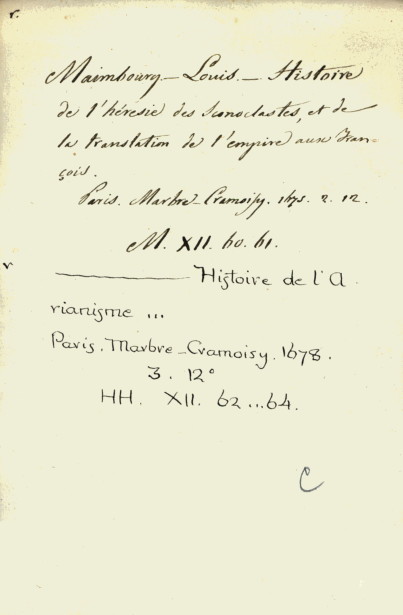 r.
Maimbourg – Louis. – Histoire
de l'hérésie des Iconoclastes, et de
la translation de l'empire aux Fran-
çois.
Paris. Marbre-Cramoisy. 1675. 2. 12.
M. XII. 60. 61.
r
——— Histoire de l'A
rianisme ...
Paris. Marbre-Cramoisy. 1678.
3. 12°
HH. XII. 62...64.
C